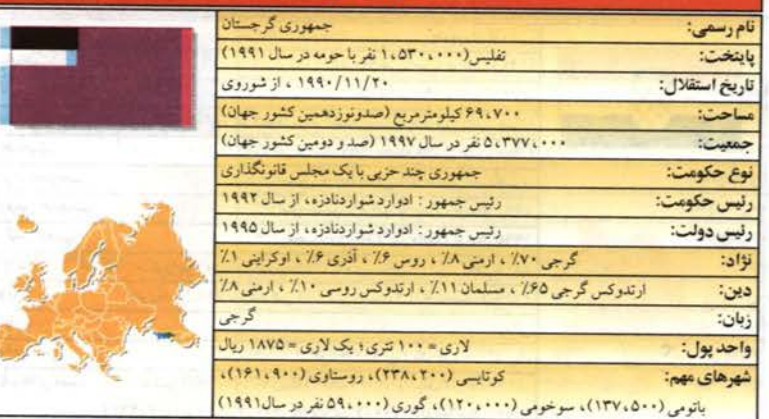 نام رسمی: جمهوری گرجستان
پایتخت: تفلیس(۱،۵۳۰،۰۰۰ نفر با حومه در سال ۱۹۹۱)
تاریخ استقلال: ۱۹۹۰/۱۱/۲۰ ، از شوروی
مساحت: ۶۹،۷۰۰ کیلومترمربع (صدونوزدهمین کشور جهان)
جمعیت: ۵،۳۷۷،۰۰۰ نفر در سال ۱۹۹۷ (صد و دومین کشور جهان)
نوع حکومت: جمهوری چند حزبی با یک مجلس قانونگذاری
رئیس حکومت: رئیس جمهور: ادوارد شواردنادزه، از سال ۱۹۹۲
رئیس دولت: رئیس جمهور: ادوارد شواردنادزه، از سال ۱۹۹۵
نژاد: گرجی ۷۰٪ ، ارمنی ۸٪ ، روس ۶٪ ، آذری ۶٪ ، اوکراینی ۱٪
دین: ارتدوکس گرجی ۶۵٪ ، مسلمان ۱۱٪ ، ارتدوکس روسی ۱۰٪ ، ارمنی ۸٪
زبان: گرجی
واحد پول: لاری = ۱۰۰ تتری؛ یک لاری = ۱۸۷۵ ریال
شهرهای مهم: کوتایسی (۲۳۸،۲۰۰)، روستاوی (۱۶۱،۹۰۰)،
باتومی (۱۳۷،۵۰۰)، سوخومی (۱۲۰،۰۰۰)، گوری (۵۹،۰۰۰ نفر در سال۱۹۹۱)